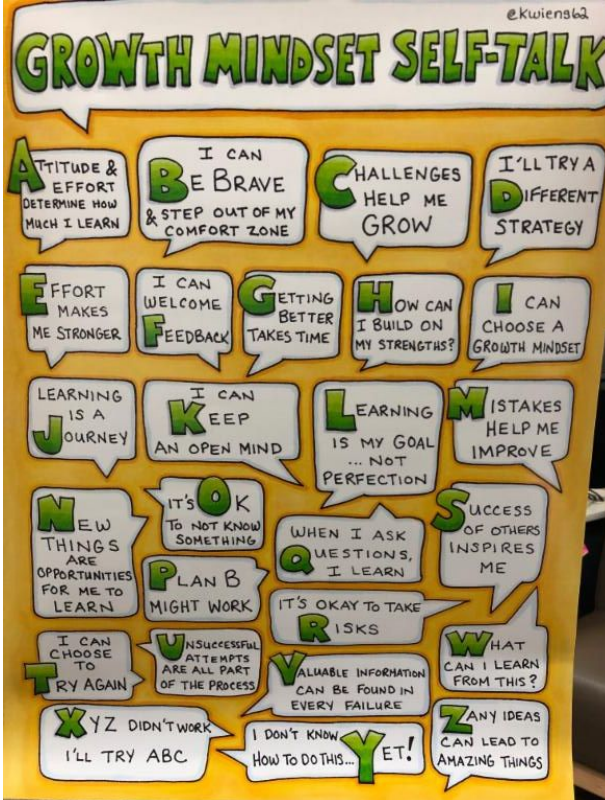 @kwiens62
GROWTH MINDSET SELF-TALK
ATTITUDE &
EFFORT
DETERMINE HOW
MUCH I LEARN
I CAN
BE BRAVE
& STEP OUT OF MY
COMFORT ZONE
CHALLENGES
HELP ME
GROW
I'LL TRY A
DIFFERENT
STRATEGY
EFFORT
MAKES
ME STRONGER
I CAN
WELCOME
FEEDBACK
GETTING
BETTER
TAKES TIME
HOW CAN
I BUILD ON
MY STRENGTHS?
I CAN
CHOOSE A
GROWTH MINDSET
LEARNING
IS A
JOURNEY
I CAN
KEEP
AN OPEN MIND
LEARNING
IS MY GOAL
... NOT
PERFECTION
MISTAKES
HELP ME
IMPROVE
NEW
THINGS
ARE
OPPORTUNITIES
FOR ME TO
LEARN
IT'S OK
TO NOT KNOW
SOMETHING
PLAN B
MIGHT WORK
WHEN I ASK
QUESTIONS,
I LEARN
IT'S OKAY TO TAKE
RISKS
SUCCESS
OF OTHERS
INSPIRES
ME
I CAN
CHOOSE
TO
TRY AGAIN
UNSUCCESSFUL
ATTEMPTS
ARE ALL PART
OF THE PROCESS
VALUABLE INFORMATION
CAN BE FOUND IN
EVERY FAILURE
WHAT
CAN I LEARN
FROM THIS?
XYZ DIDN'T WORK
I'LL TRY ABC
I DON'T KNOW
HOW TO DO THIS... YET!
ZANY IDEAS
CAN LEAD TO
AMAZING THINGS